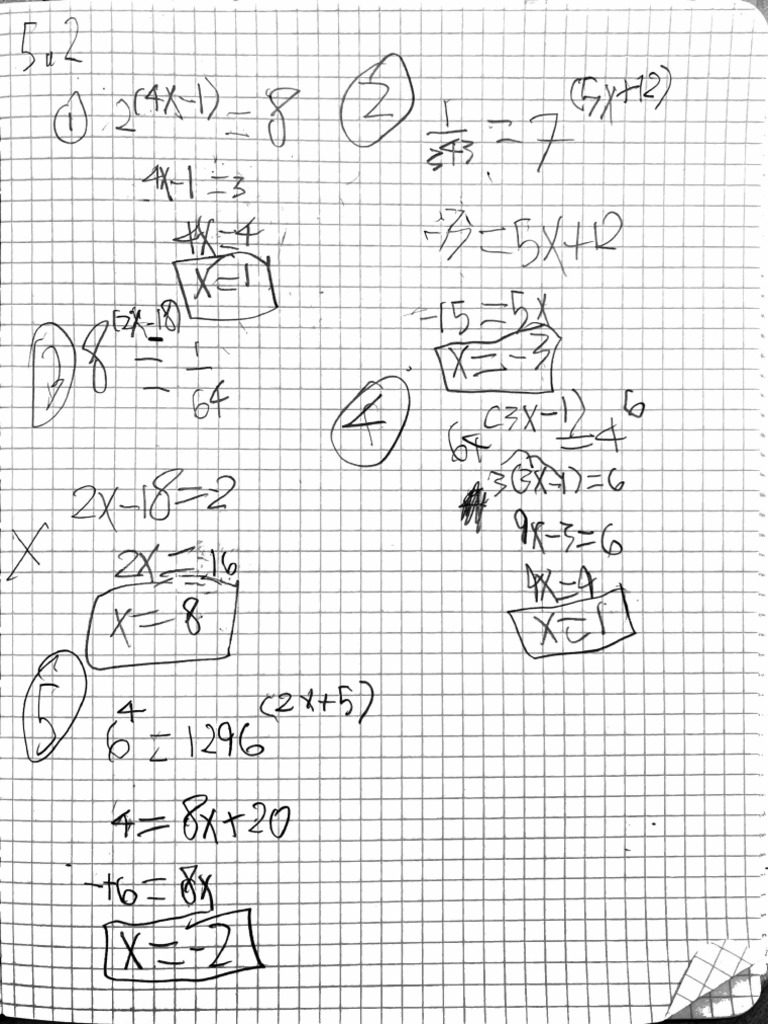 5.2
① 2^(4x-1) = 8
4x-1 = 3
4x = 4
x = 1
② 1/343 = 7^(5x+12)
-3 = 5x+12
-15 = 5x
x = -3
③ 8^(2x-18) = 1/64
X 2x-18 = -2
2x = 16
x = 8
④ 64^(3x-1) = 4^6
3(3x-1) = 6
9x-3 = 6
4x = 4
x = 1
⑤ 6^4 = 1296^(2x+5)
4 = 8x+20
-16 = 8x
x = -2